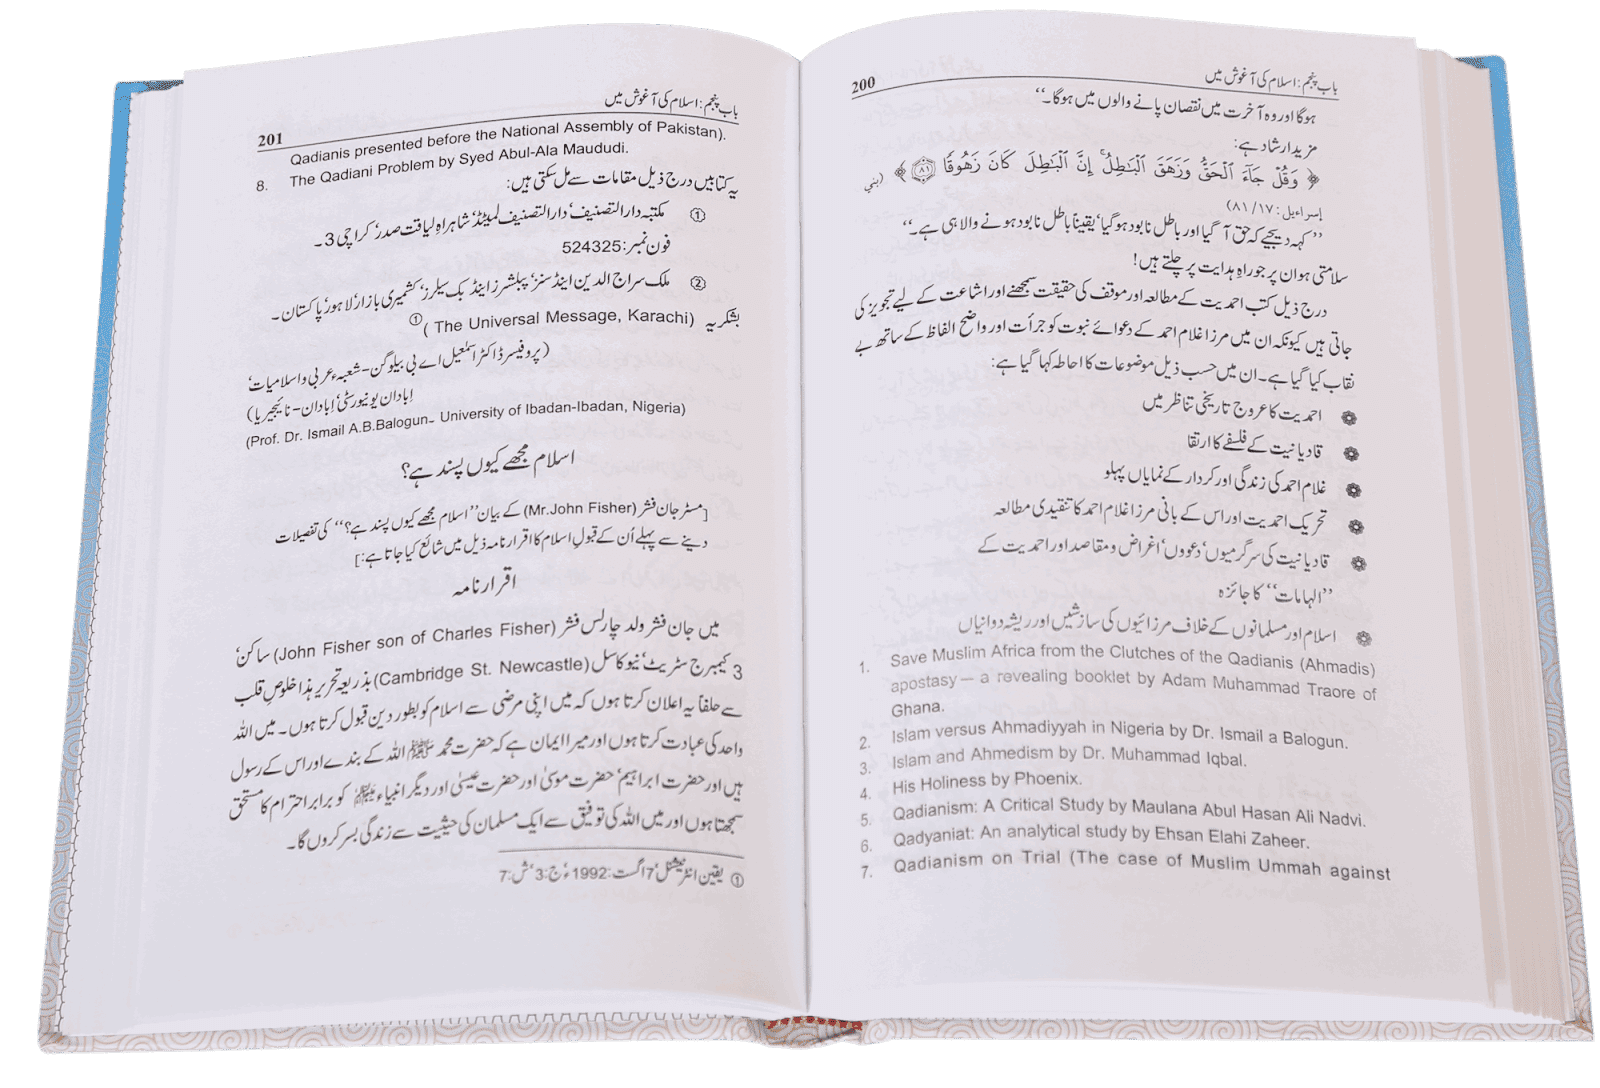 باب پنجم: اسلام کی آغوش میں
200
ہوگا اور وہ آخرت میں نقصان پانے والوں میں ہوگا۔‘‘
مزید ارشاد ہے:
﴿ وَقُلْ جَآءَ الْحَقُّ وَزَهَقَ الْبَـٰطِلُ ۚ إِنَّ الْبَـٰطِلَ كَانَ زَهُوقًا ﴿٨١﴾ ﴾ (بني
إسراءيل: ١٧/ ٨١)
’’کہہ دیجیے کہ حق آ گیا اور باطل نابود ہو گیا‘ یقیناً باطل نابود ہونے والا ہی ہے۔‘‘
سلامتی ہو ان پر جو راہِ ہدایت پر چلتے ہیں!
درج ذیل کتب احمدیت کے مطالعہ اور موقف کی حقیقت سمجھنے اور اشاعت کے لیے تجویز کی
جاتی ہیں کیونکہ ان میں مرزا غلام احمد کے دعوائے نبوت کو جرأت اور واضح الفاظ کے ساتھ بے
نقاب کیا گیا ہے۔ ان میں حسب ذیل موضوعات کا احاطہ کہا گیا ہے:
احمدیت کا عروج تاریخی تناظر میں
قادیانیت کے فلسفے کا ارتقا
غلام احمد کی زندگی اور کردار کے نمایاں پہلو
تحریک احمدیت اور اس کے بانی مرزا غلام احمد کا تنقیدی مطالعہ
قادیانیت کی سرگرمیوں‘ دعووں‘ اغراض و مقاصد اور احمدیت کے
’’الہامات‘‘ کا جائزہ
اسلام اور مسلمانوں کے خلاف مرزائیوں کی سازشیں اور ریشہ دوانیاں
1. Save Muslim Africa from the Clutches of the Qadianis (Ahmadis)
apostasy — a revealing booklet by Adam Muhammad Traore of
Ghana.
2. Islam versus Ahmadiyyah in Nigeria by Dr. Ismail a Balogun.
3. Islam and Ahmedism by Dr. Muhammad Iqbal.
4. His Holiness by Phoenix.
5. Qadianism: A Critical Study by Maulana Abul Hasan Ali Nadvi.
6. Qadyaniat: An analytical study by Ehsan Elahi Zaheer.
7. Qadianism on Trial (The case of Muslim Ummah against
باب پنجم: اسلام کی آغوش میں
201
Qadianis presented before the National Assembly of Pakistan).
8. The Qadiani Problem by Syed Abul-Ala Maududi.
یہ کتابیں درج ذیل مقامات سے مل سکتی ہیں:
① مکتبہ دارالتصنیف‘ دارالتصنیف لمیٹڈ‘ شاہراہِ لیاقت صدر‘ کراچی 3۔
فون نمبر: 524325
② ملک سراج الدین اینڈ سنز‘ پبلشرز اینڈ بک سیلرز‘ کشمیری بازار‘ لاہور‘ پاکستان۔
بشکریہ (The Universal Message, Karachi) ①
(پروفیسر ڈاکٹر اسمعیل اے بی بیلوگن - شعبہء عربی و اسلامیات‘
اِبادان یونیورسٹی‘ اِبادان - نائیجیریا)
(Prof. Dr. Ismail A.B.Balogun- University of Ibadan-Ibadan, Nigeria)
اسلام مجھے کیوں پسند ہے؟
[مسٹر جان فشر (Mr.John Fisher) کے بیان ’’اسلام مجھے کیوں پسند ہے؟‘‘ کی تفصیلات
دینے سے پہلے اُن کے قبولِ اسلام کا اقرار نامہ ذیل میں شائع کیا جاتا ہے:]
اقرار نامہ
میں جان فشر ولد چارلس فشر (John Fisher son of Charles Fisher) ساکن‘
3 کیمبرج سٹریٹ‘ نیوکاسل (Cambridge St. Newcastle) بذریعہ تحریر ہذا خلوصِ قلب
سے حلفاً یہ اعلان کرتا ہوں کہ میں اپنی مرضی سے اسلام کو بطور دین قبول کرتا ہوں۔ میں اللہ
واحد کی عبادت کرتا ہوں اور میرا ایمان ہے کہ حضرت محمد ﷺ اللہ کے بندے اور اس کے رسول
ہیں اور حضرت ابراہیم‘ حضرت موسیٰ اور حضرت عیسیٰ اور دیگر انبیاء کو برابر احترام کا مستحق
سمجھتا ہوں اور میں اللہ کی توفیق سے ایک مسلمان کی حیثیت سے زندگی بسر کروں گا۔
① یقین انٹرنیشنل‘ 7 اگست: 1992ء‘ ج: 3‘ ش: 7